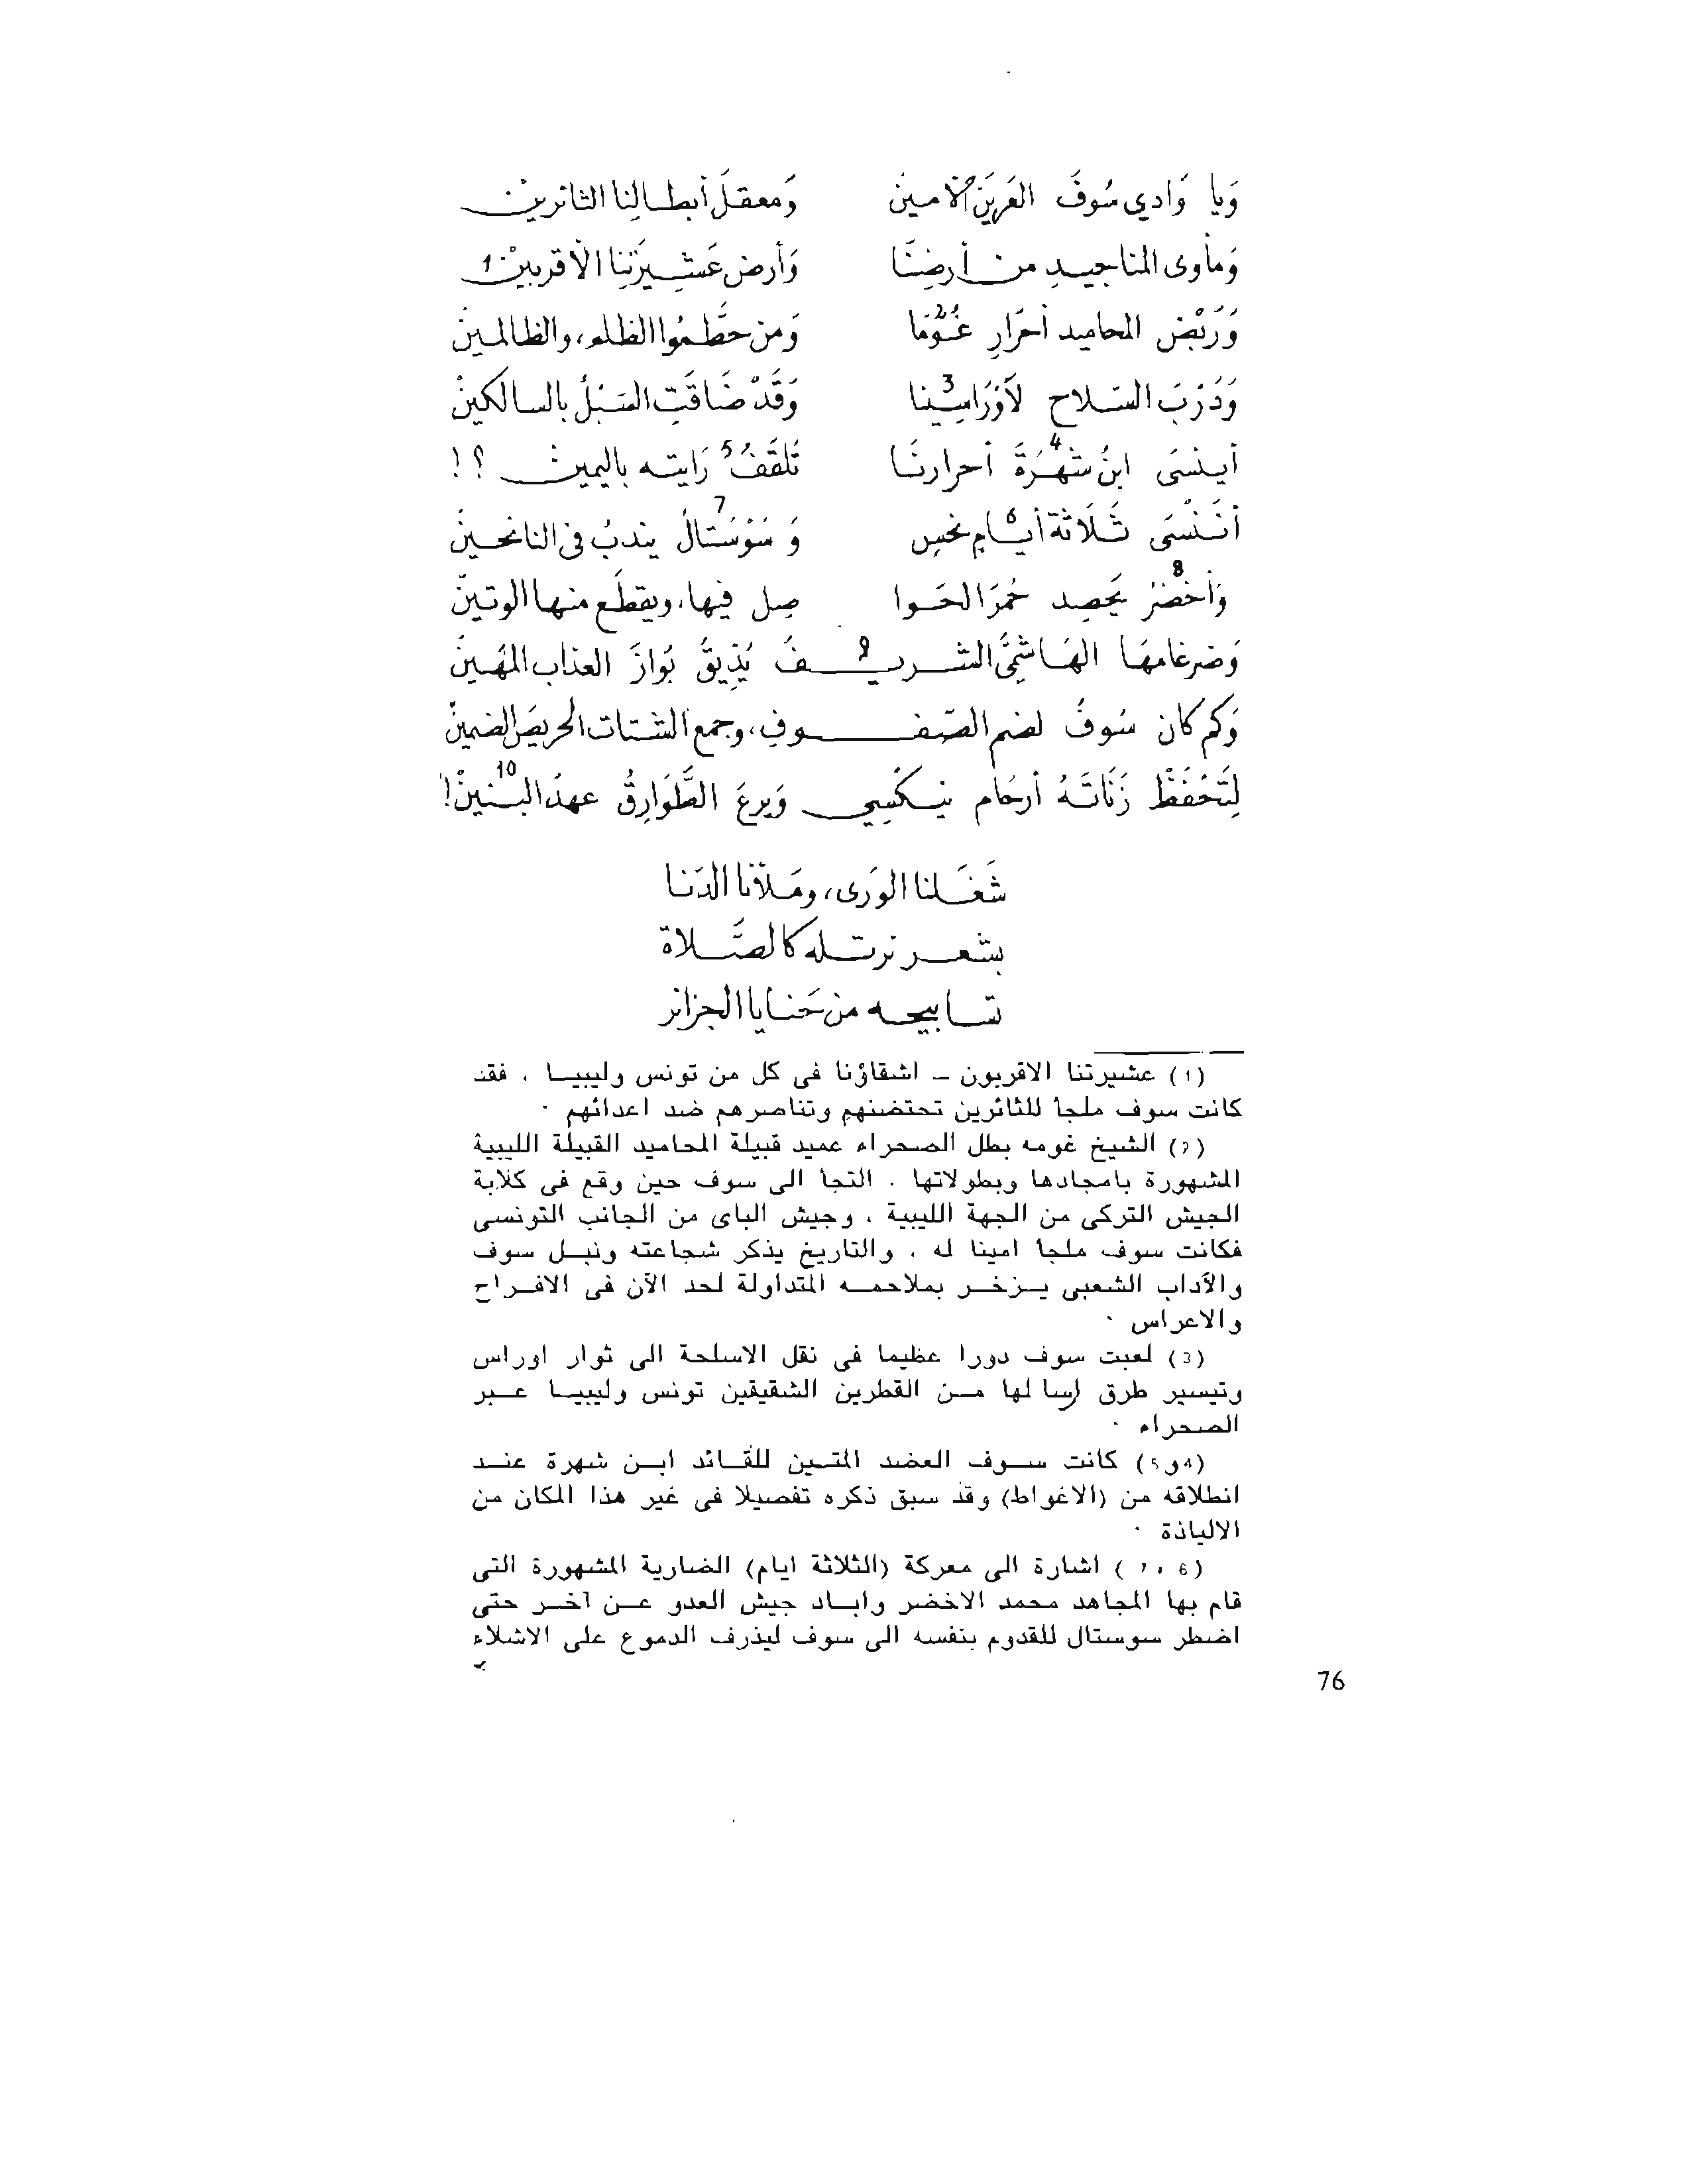 وَيا وَادي سُوفَ العَرِينَ الأمينْ وَمعقلَ أبطالِنا الثائرينْ
وَمأوى المناجيدِ من أرضِنَا وَأرض عَشِيرَتِنا الأقربينْ 1
وَرَبْضَ المحاميد أحْرَارِ غُومَا 2 وَمن حطَّمُوا الظلم، والظالمينْ
وَدَرْبَ السّلاح لأوْرَاسِنا 3 وَقَدْ ضَاقَتِ السُبْلُ بالسالكينْ
أينسَى ابنُ شُهْرَةَ 4 أحرارنَا تَلَقّفُ 5 رَايته باليمين ؟ !
أنَنْسَى ثَلاثة أيّامِ 6 نحسٍ وَ سُوْسْتَالُ 7 يندبُ في النائحينْ
وَأخضَرُ 8 يَحصِد حُمرَ الحَوا صِلِ فيها، ويقطَع منها الوتينْ
وَضرغامهَا الهَاشميُّ الشريـ 9 ـفُ يُذِيقُ بَوارَ العذاب المهينْ
وَكم كان سُوفُ لضم الصّفـ ـوفِ، وجمع الشتات الحريصَ الضمينْ
لِتَحْفَظْ زَنَاتَهُ أرحَام نِيكسِي وَيرعَ الطَّوَارِقُ عهدَ البنينْ! 10
شَغَلنا الوَرى، ومَلأنا الدّنا
بشعر نرتله كالصَّلاة
تسابيحه من حَنايا الجزائر
(1) عشيرتنا الاقربون - اشقاؤنا فى كل من تونس وليبيا ، فقد
كانت سوف ملجأ للثائرين تحتضنهم وتناصرهم ضد اعدائهم ٠
(2) الشيخ غومه بطل الصحراء عميد قبيلة المحاميد القبيلة الليبية
المشهورة بامجادها وبطولاتها ٠ التجأ الى سوف حين وقع فى كلابة
الجيش التركى من الجهة الليبية ، وجيش الباى من الجانب التونسى
فكانت سوف ملجأ امينا له ، والتاريخ يذكر شجاعته ونبل سوف
والآداب الشعبى يزخر بملاحمه المتداولة لحد الآن فى الافراح
والاعراس ٠
(3) لعبت سوف دورا عظيما فى نقل الاسلحة الى ثوار اوراس
وتيسير طرق إرسالها من القطرين الشقيقين تونس وليبيا عبر
الصحراء ٠
(4و5) كانت سوف العضد المتين للقائد ابن شهرة عند
انطلاقه من (الاغواط) وقد سبق ذكره تفصيلا فى غير هذا المكان من
الالياذة ٠
(6 ، 7 ) اشارة الى معركة (الثلاثة ايام) الضارية المشهورة التى
قام بها المجاهد محمد الاخضر واباد جيش العدو عن آخر حتى
اضطر سوستال للقدوم بنفسه الى سوف ليذرف الدموع على الاشلاء
76